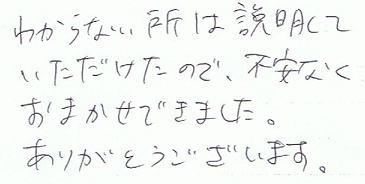 わからない所は説明して
いただけたので、不安なく
おまかせできました。
ありがとうございます。